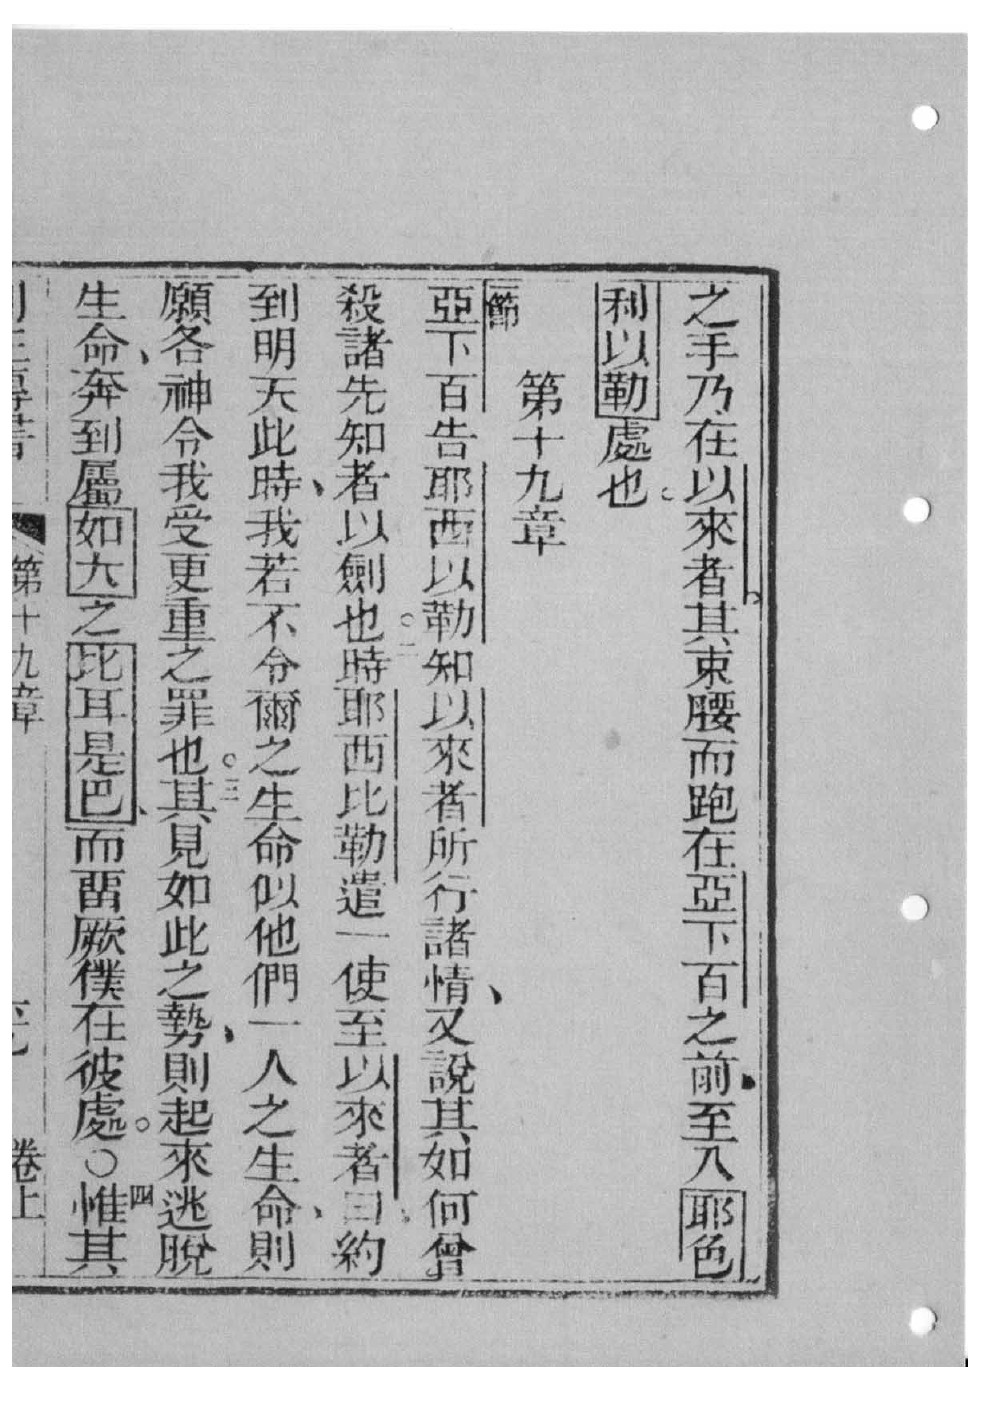 之手乃在以來者。其束腰而跑在亞下百之前、至入耶色
利以勒處也。
第十九章
一節
亞下百告耶西以勒知以來者所行諸情、又說其如何曾
殺諸先知者以劍也。二時耶西比勒遣一使至以來者曰、約
到明天此時、我若不令爾之生命似他們一人之生命、則
願各神令我受更重之罪也。三其見如此之勢、則起來逃脫
生命、奔到屬如大之比耳是巴、而留厥僕在彼處。○四惟其
第十九章
卷上